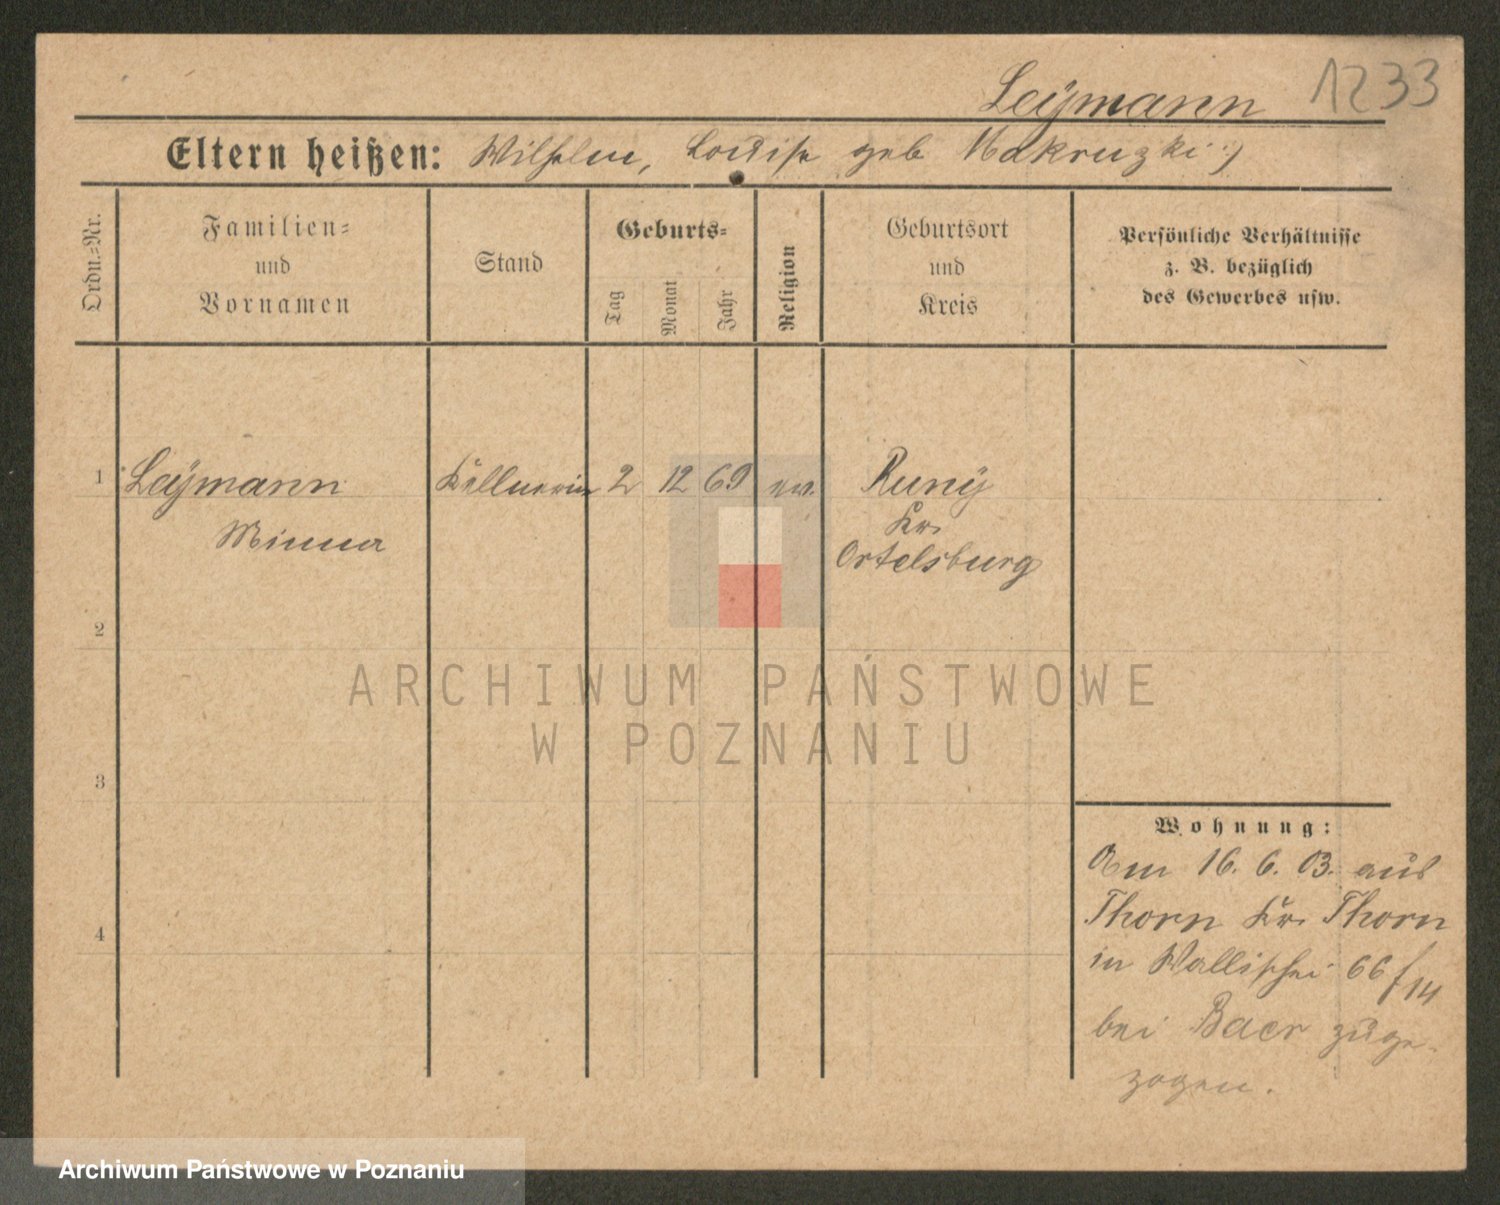 Leÿmann
1233
Eltern heißen: Wilhelm, Louise geb Makruzki
Ordn.-Nr.
Familien-
und
Vornamen
Stand
Geburts-
Tag
Monat
Jahr
Religion
Geburtsort
und
Kreis
Persönliche Verhältnisse
z. B. bezüglich
des Gewerbes usw.
1 Leÿmann Kellnerin 2 12 69 ev. Runÿ
Minna
Kr.
Ortelsburg
2
3
4
Wohnung:
Am 16. 6. 03. aus
Thorn Kr. Thorn
in Wallischei 66 f 14
bei Baer zuge-
zogen.
ARCHIWUM PAŃSTWOWE
W POZNANIU
Archiwum Państwowe w Poznaniu